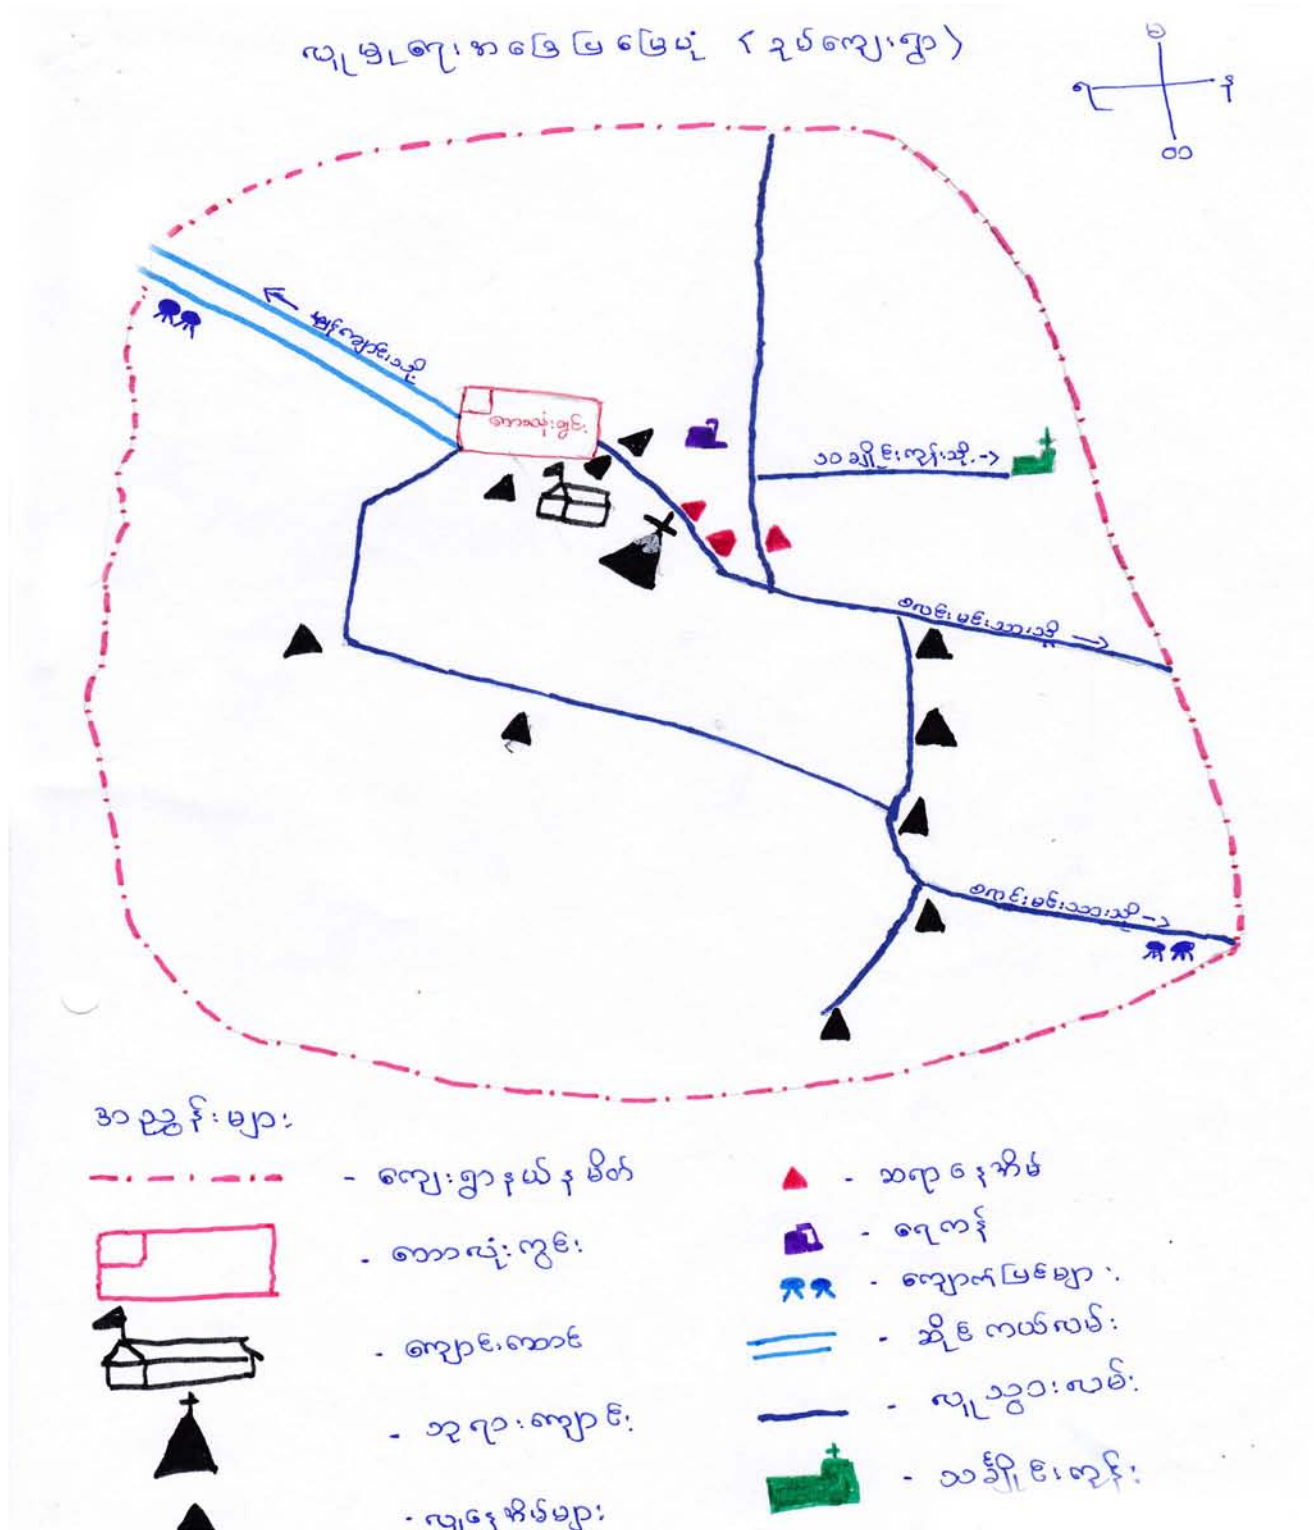 လူမှုရေးအခြေပြမြေပုံ (ဒုပ်ကျေးရွာ)
မ
ရ
န
တ
ဘောလုံးကွင်း
သင်္ချိုင်းကုန်းသို့ ->
စလင်းမင်းသားသို့ ->
စလင်းမင်းသားသို့ ->
အညွှန်းများ
- ကျေးရွာနယ်နမိတ်
- ဘောလုံးကွင်း
- ကျောင်းဆောင်
- ဘုရားကျောင်း
- လူနေအိမ်များ
- ဆရာနေအိမ်
- ရေကန်
- ကျောက်ဖြစ်များ
- ဆိုင်ကယ်လမ်း
- လူသွားလမ်း
- သင်္ချိုင်းကုန်း